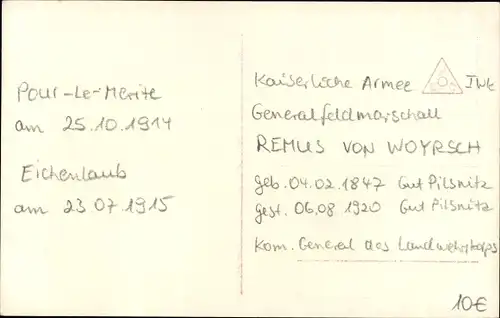 Pour-Le-Merite
am 25.10.1914
Eichenlaub
am 23.07.1915
Kaiserliche Armee IWK
Generalfeldmarschall
REMUS VON WOYRSCH
geb. 04.02.1847 Gut Pilsnitz
gest. 06.08.1920 Gut Pilsnitz
Kom. General des Landwehrkorps
10€